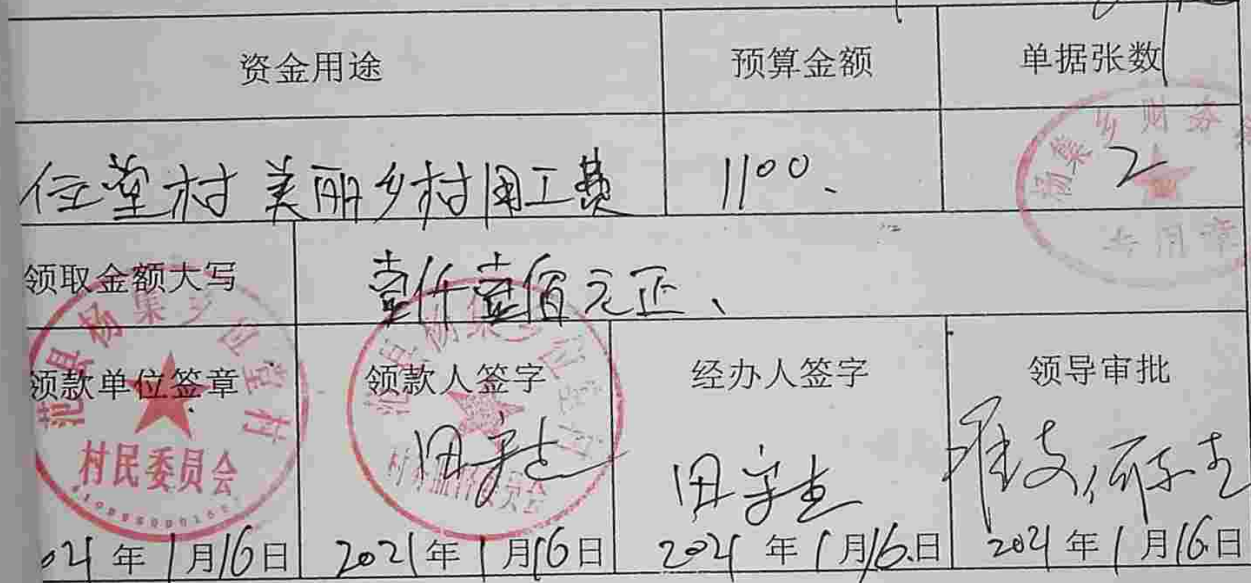 资金用途 预算金额 单据张数
位堂村 美丽乡村用工费 1100、 2
杨集乡财务
专用章
领取金额大写 壹仟壹佰元正、
领款单位签章 领款人签字 经办人签字 领导审批
范县杨集乡位堂村
村民委员会
范县杨集乡位堂村
村务监督委员会
田守志 田守志 准支
021年1月16日 2021年1月16日 2021年1月16日 2021年1月16日